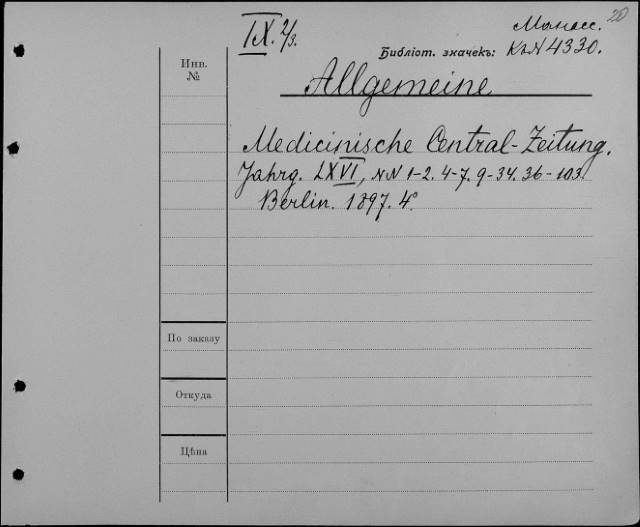 20
IX. 2/3.
Манасс.
Библіот. значекъ: К&N 4330.
Инв.
№
Allgemeine
Medicinische Central-Zeitung.
Jahrg. LXVI, NN 1-2. 4-7. 9-34. 36-103.
Berlin. 1897. 4°
По заказу
Откуда
Цѣна